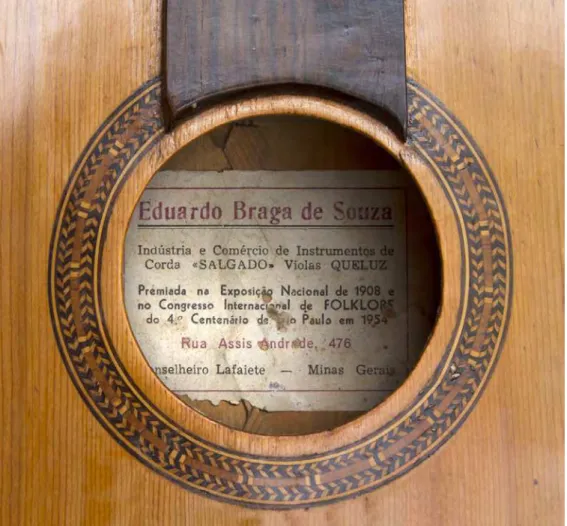 Eduardo Braga de Souza
Indústria e Comércio de Instrumentos de
Corda «SALGADO» Violas QUELUZ
Prêmiada na Exposição Nacional de 1908 e
no Congresso Internacional de FOLKLORE
do 4.º Centenário de São Paulo em 1954
Rua Assis Andrade, 476
nselheiro Lafaiete — Minas Gerais